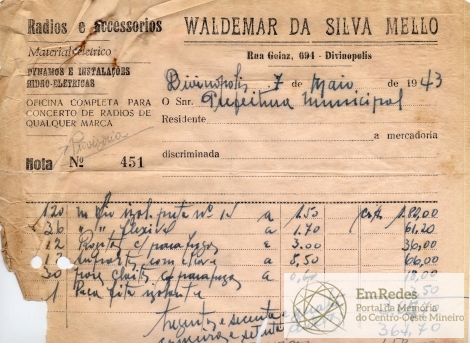 Radios e accessorios
Material elétrico
DYNAMOS E INSTALAÇÕES
HIDRO-ELETRICAS
OFICINA COMPLETA PARA
CONCERTO DE RADIOS DE
QUALQUER MARCA
Nota Nº 451
WALDEMAR DA SILVA MELLO
Rua Goiaz, 694 - Divinopolis
Divinopolis 7 de Maio de 1943
O Snr. Prefeitura Municipal
Residente
a mercadoria
discriminada
120 m fio isol. preto nº 14 a 1,50 180,00
36 " " flexivel a 1,70 61,20
12 c/ parafusos a 3.00 36,00
12 com chave a 5,50 66,00
30 c/ parafusos a 0,60 18,00
1 Peça fita isolante ,50
Trezentos e sessenta e
364,70
EmRedes
Portal da Memória
do Centro-Oeste Mineiro